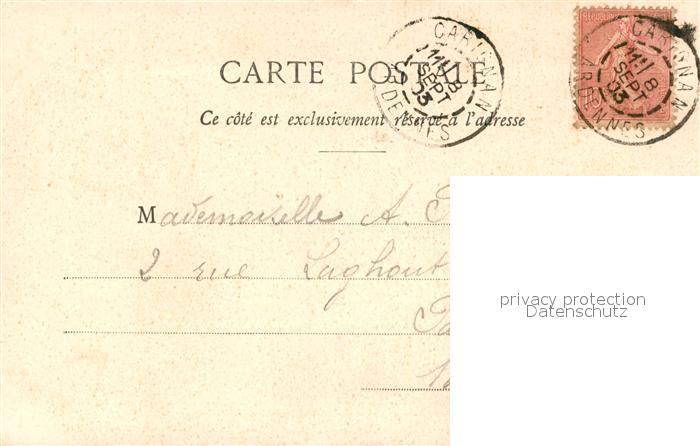 CARTE POSTALE
Ce côté est exclusivement réservé à l'adresse
CARIGNAN
11 8
SEPT
03
ARDENNES
CARIGNAN
11 8
SEPT
03
ARDENNES
Mademoiselle A.
2 rue Laghouat
privacy protection
Datenschutz